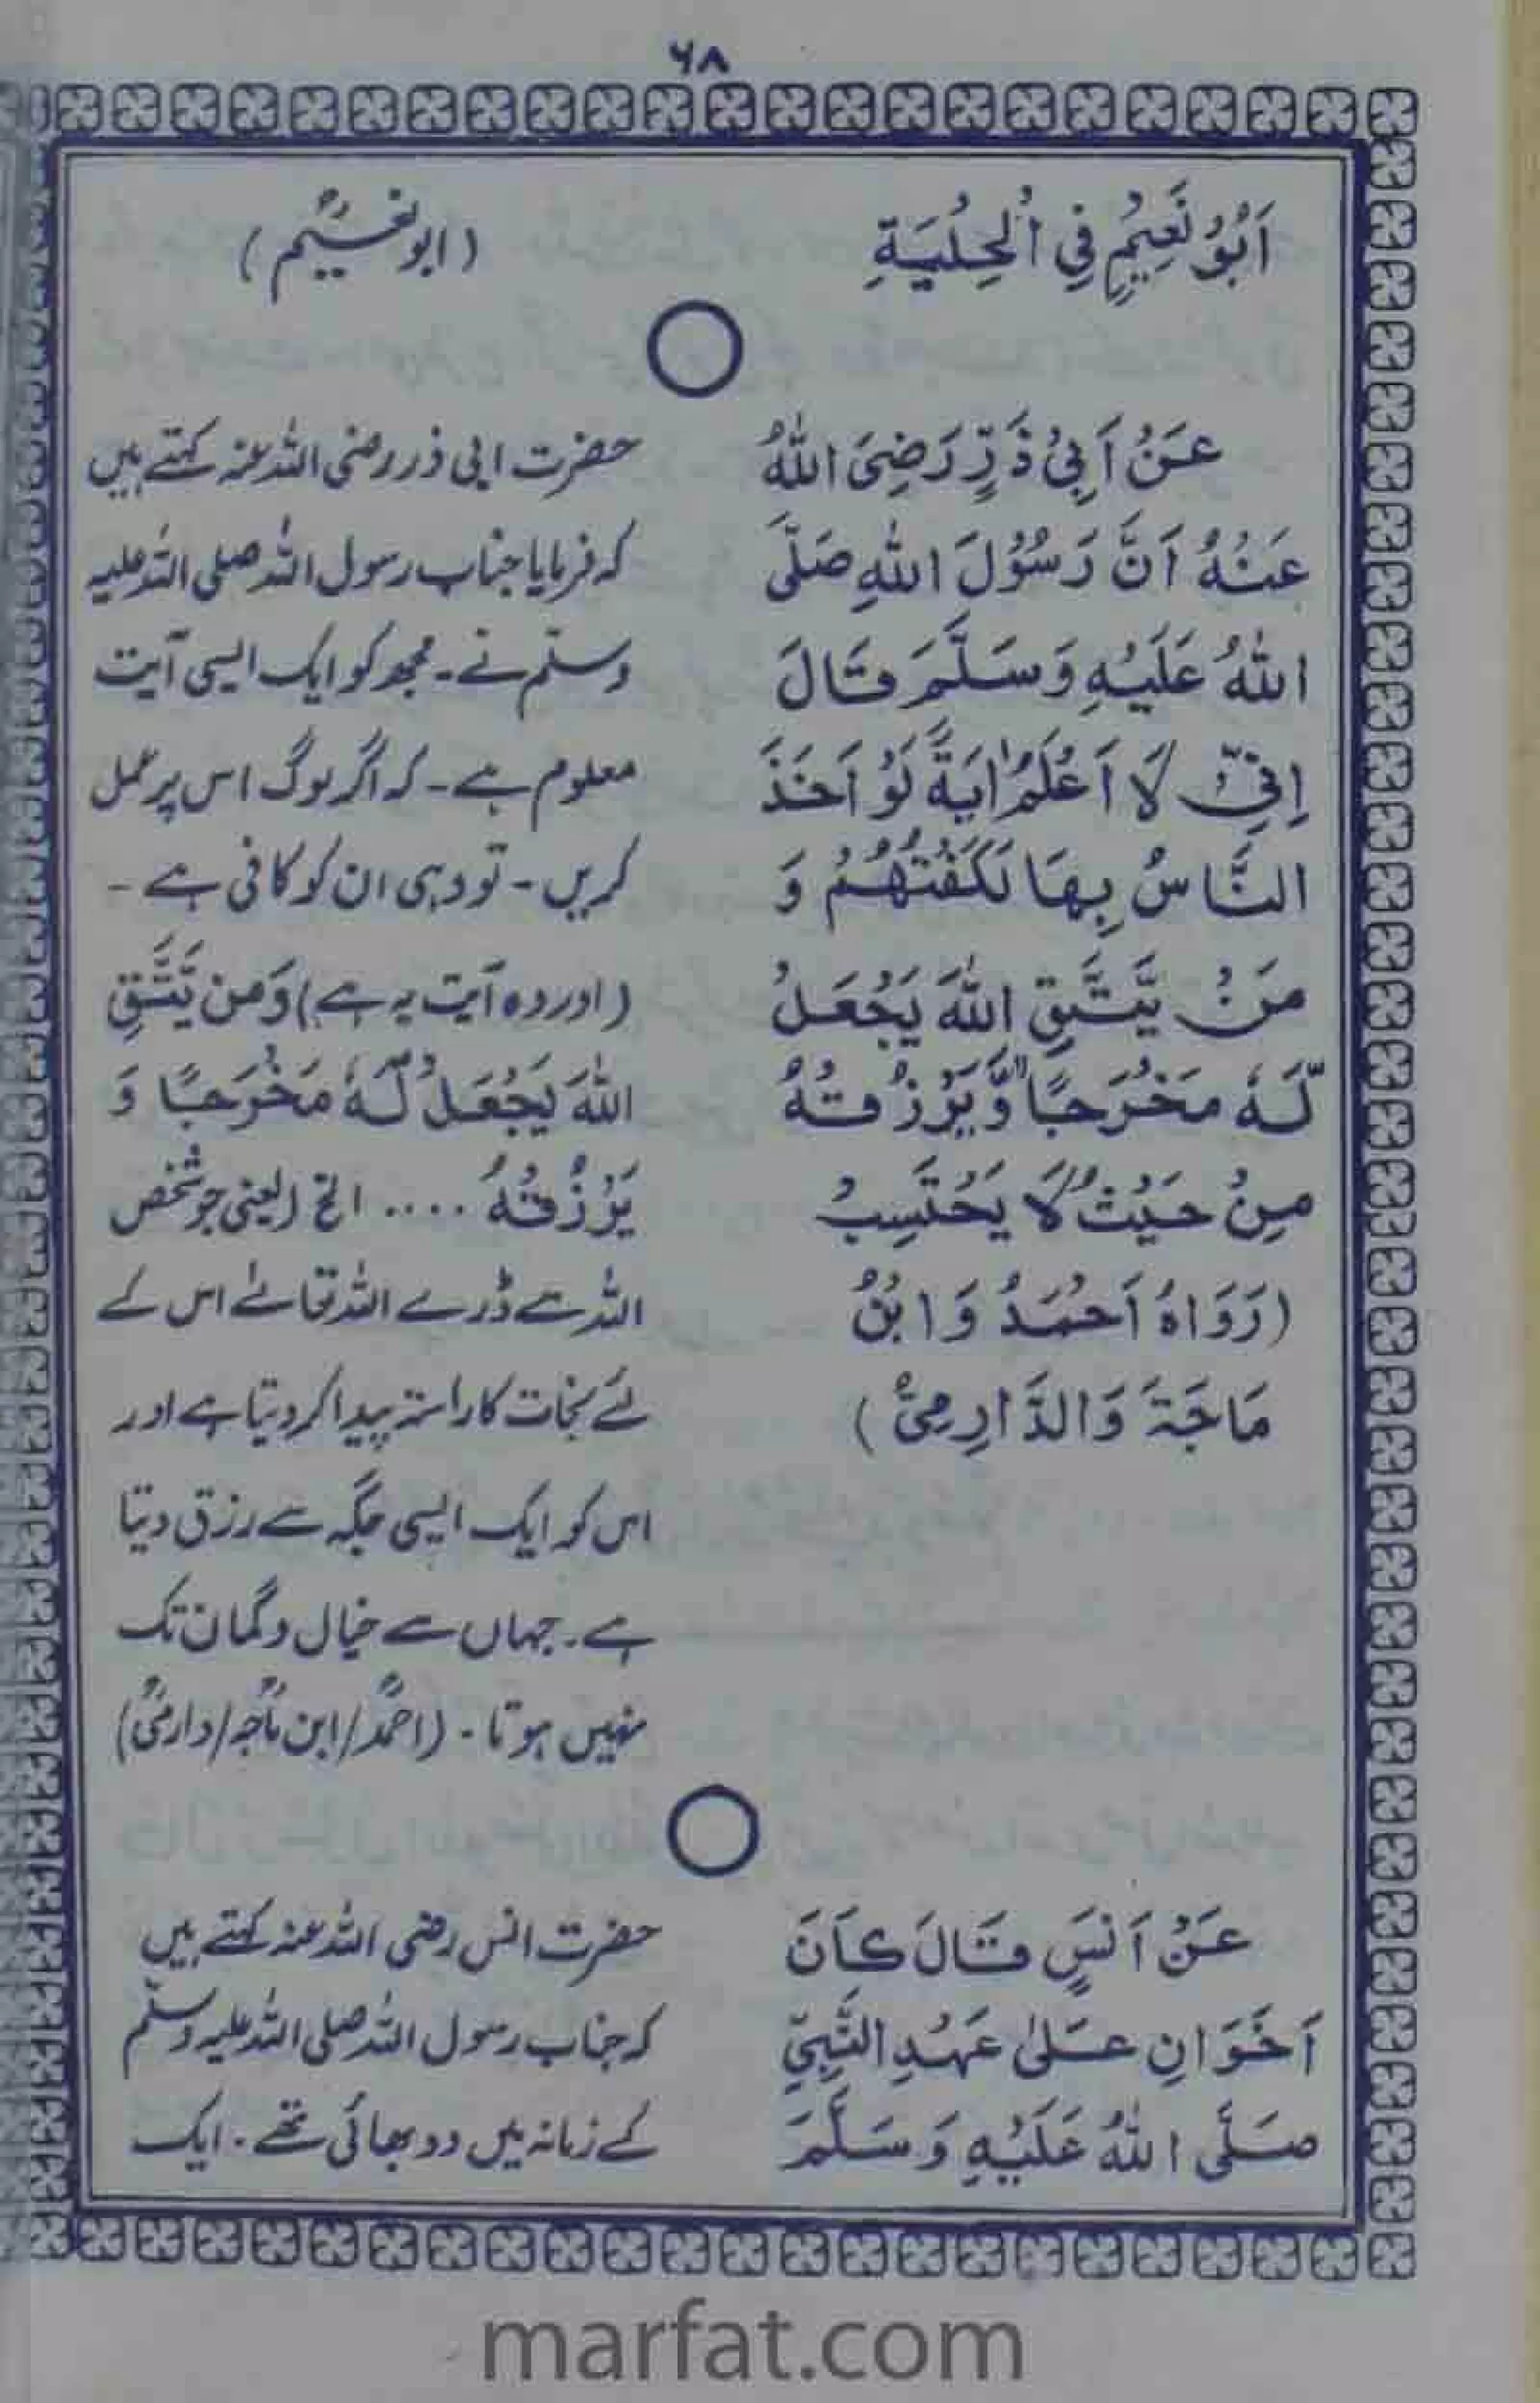 ۶۸
اَبُوْ نَعِیْمٍ فِی الْحِلْیَۃِ
عَنْ اَبِیْ ذَرٍّ رَضِیَ اللّٰہُ
عَنْہُ اَنَّ رَسُوْلَ اللّٰہِ صَلَّی
اللّٰہُ عَلَیْہِ وَسَلَّمَ قَالَ
اِنِّیْ لَا اَعْلَمُ اٰیَۃً لَوْ اَخَذَ
النَّاسُ بِھَا لَکَفَتْھُمْ وَ
مَنْ یَّتَّقِ اللّٰہَ یَجْعَلْ
لَّہٗ مَخْرَجًا وَّیَرْزُقْہُ
مِنْ حَیْثُ لَا یَحْتَسِبْ
(رَوَاہُ اَحْمَدُ وَابْنُ
مَاجَۃَ وَالدَّارِمِیُّ)
عَنْ اَنَسٍ قَالَ کَانَ
اَخَوَانِ عَلٰی عَہْدِ النَّبِیِّ
صَلَّی اللّٰہُ عَلَیْہِ وَسَلَّمَ
(ابونعیمؒ)
حضرت ابی ذر رضی اللہ عنہ کہتے ہیں
کہ فرمایا جناب رسول اللہ صلی اللہ علیہ
وسلّم نے۔ مجھ کو ایک ایسی آیت
معلوم ہے۔ کہ اگر لوگ اس پر عمل
کریں۔ تو وہی ان کو کافی ہے۔
(اور وہ آیت یہ ہے) وَمَن یَّتَّقِ
اللّٰہَ یَجْعَلْ لَّہٗ مَخْرَجًا وَ
یَرْزُقْہُ .... الخ (یعنی جو شخص
اللہ سے ڈرے اللہ تعالےٰ اس کے
لئے نجات کا راستہ پیدا کر دیتا ہے اور
اس کو ایک ایسی جگہ سے رزق دیتا
ہے۔ جہاں سے خیال و گمان تک
نہیں ہوتا۔ (احمدؒ/ابن ماجہؒ/دارمیؒ)
حضرت انس رضی اللہ عنہ کہتے ہیں
کہ جناب رسول اللہ صلی اللہ علیہ وسلّم
کے زمانہ میں دو بھائی تھے۔ ایک
marfat.com